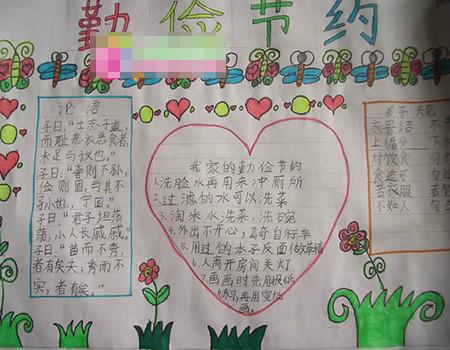 勤俭节约
论语
子曰:“士志于道,
而耻恶衣恶食者,
未足与议也。”
子曰:“奢则不孙,
俭则固,与其不
孙也,宁固。”
子曰:“君子坦荡
荡,小人长戚戚。”
子曰:“苗而不秀,
者有矣夫;秀而不
实,者有矣。”
我家的勤俭节约
1.洗脸水再用来冲厕所
2.过滤的水可以洗菜
3.淘米水洗菜、洗碗
4.外出不开心,骑自行车
5.用过的本子反面做草稿
6.人离开房间关灯
7.画画时先用废纸
练习,再用宣纸
画。
弟子规
衣贵洁 不
上循分
对饮食 勿
食适可 勿
若衣服 若饮
不如人 勿生